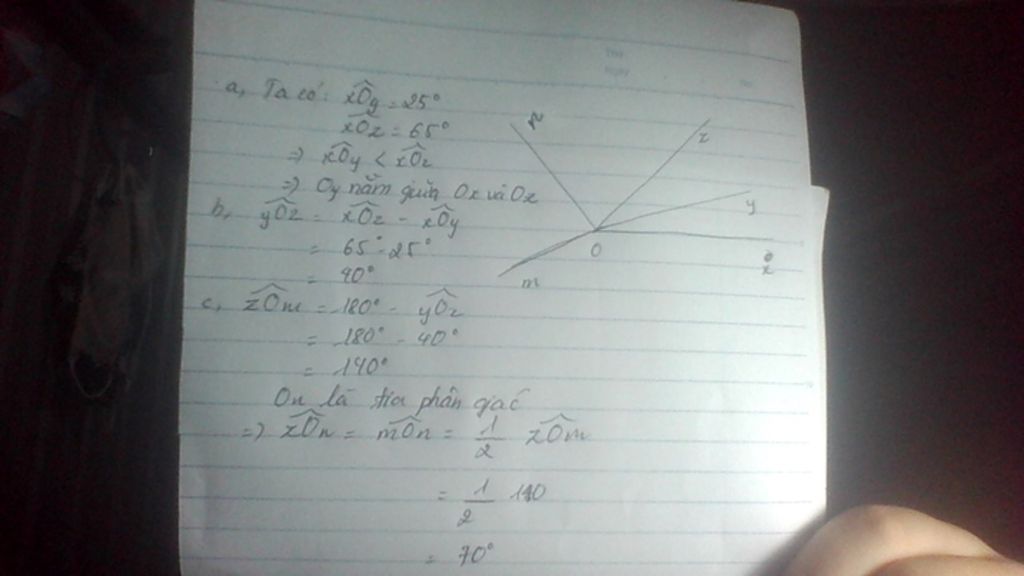 Thứ
Ngày
a, Ta có: xÔy = 25°
xÔz = 65°
=> xÔy < xÔz
=> Oy nằm giữa Ox và Oz
b, yÔz = xÔz - xÔy
= 65° - 25°
= 40°
c, zÔm = 180° - yÔz
= 180° - 40°
= 140°
On là tia phân giác
=> zÔn = mÔn = 1/2 zÔm
= 1/2 140
= 70°
n
z
y
O
x
m